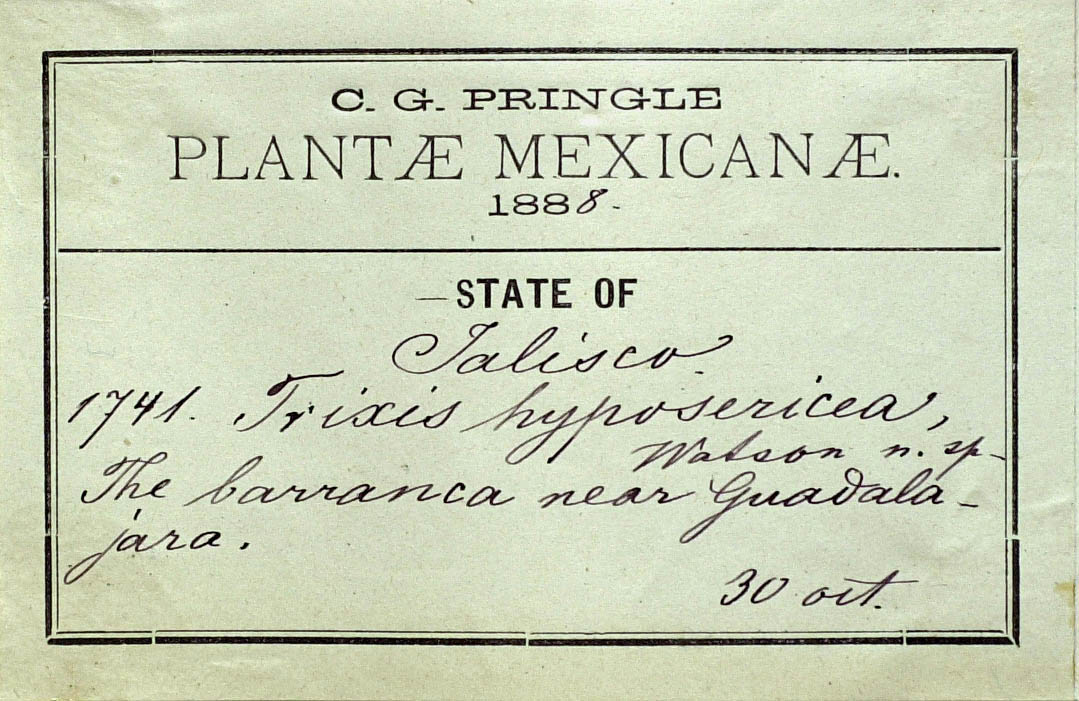 C. G. PRINGLE
PLANTÆ MEXICANÆ.
1888.
STATE OF
Jalisco.
1741. Trixis hyposericea,
Watson n. sp.
The barranca near Guadala-
jara.
30 oct.